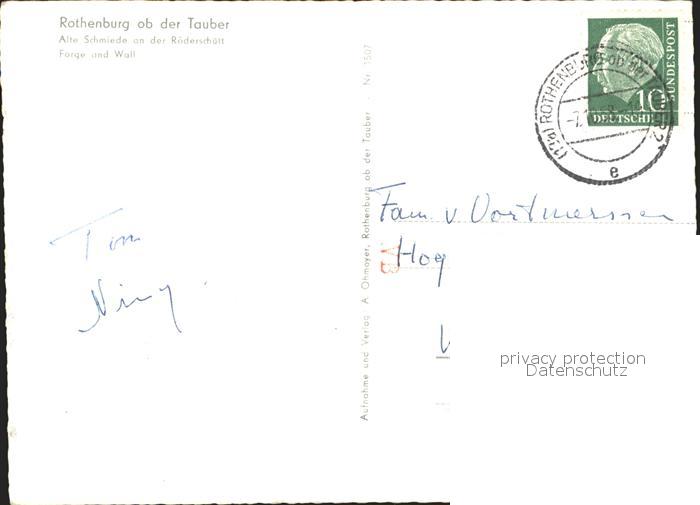 Rothenburg ob der Tauber
Alte Schmiede an der Röderschütt
Forge and Wall
Aufnahme und Verlag A. Ohmayer, Rothenburg ob der Tauber · Nr. 1507
10
DEUTSCHE
BUNDESPOST
(13a) ROTHENBURG OB DER
e
Fam. v
Hog
Tom
privacy protection
Datenschutz